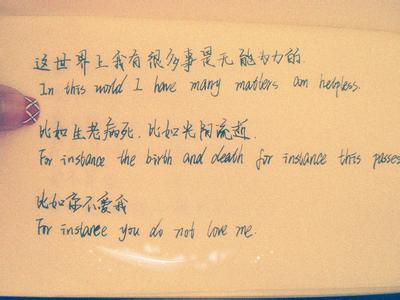 这世界上我有很多事是无能为力的.
In this world I have many matters am helpless.
比如生老病死.比如光阴流逝.
For instance the birth and death for instance this passes
比如你不爱我
For instance you do not love me.